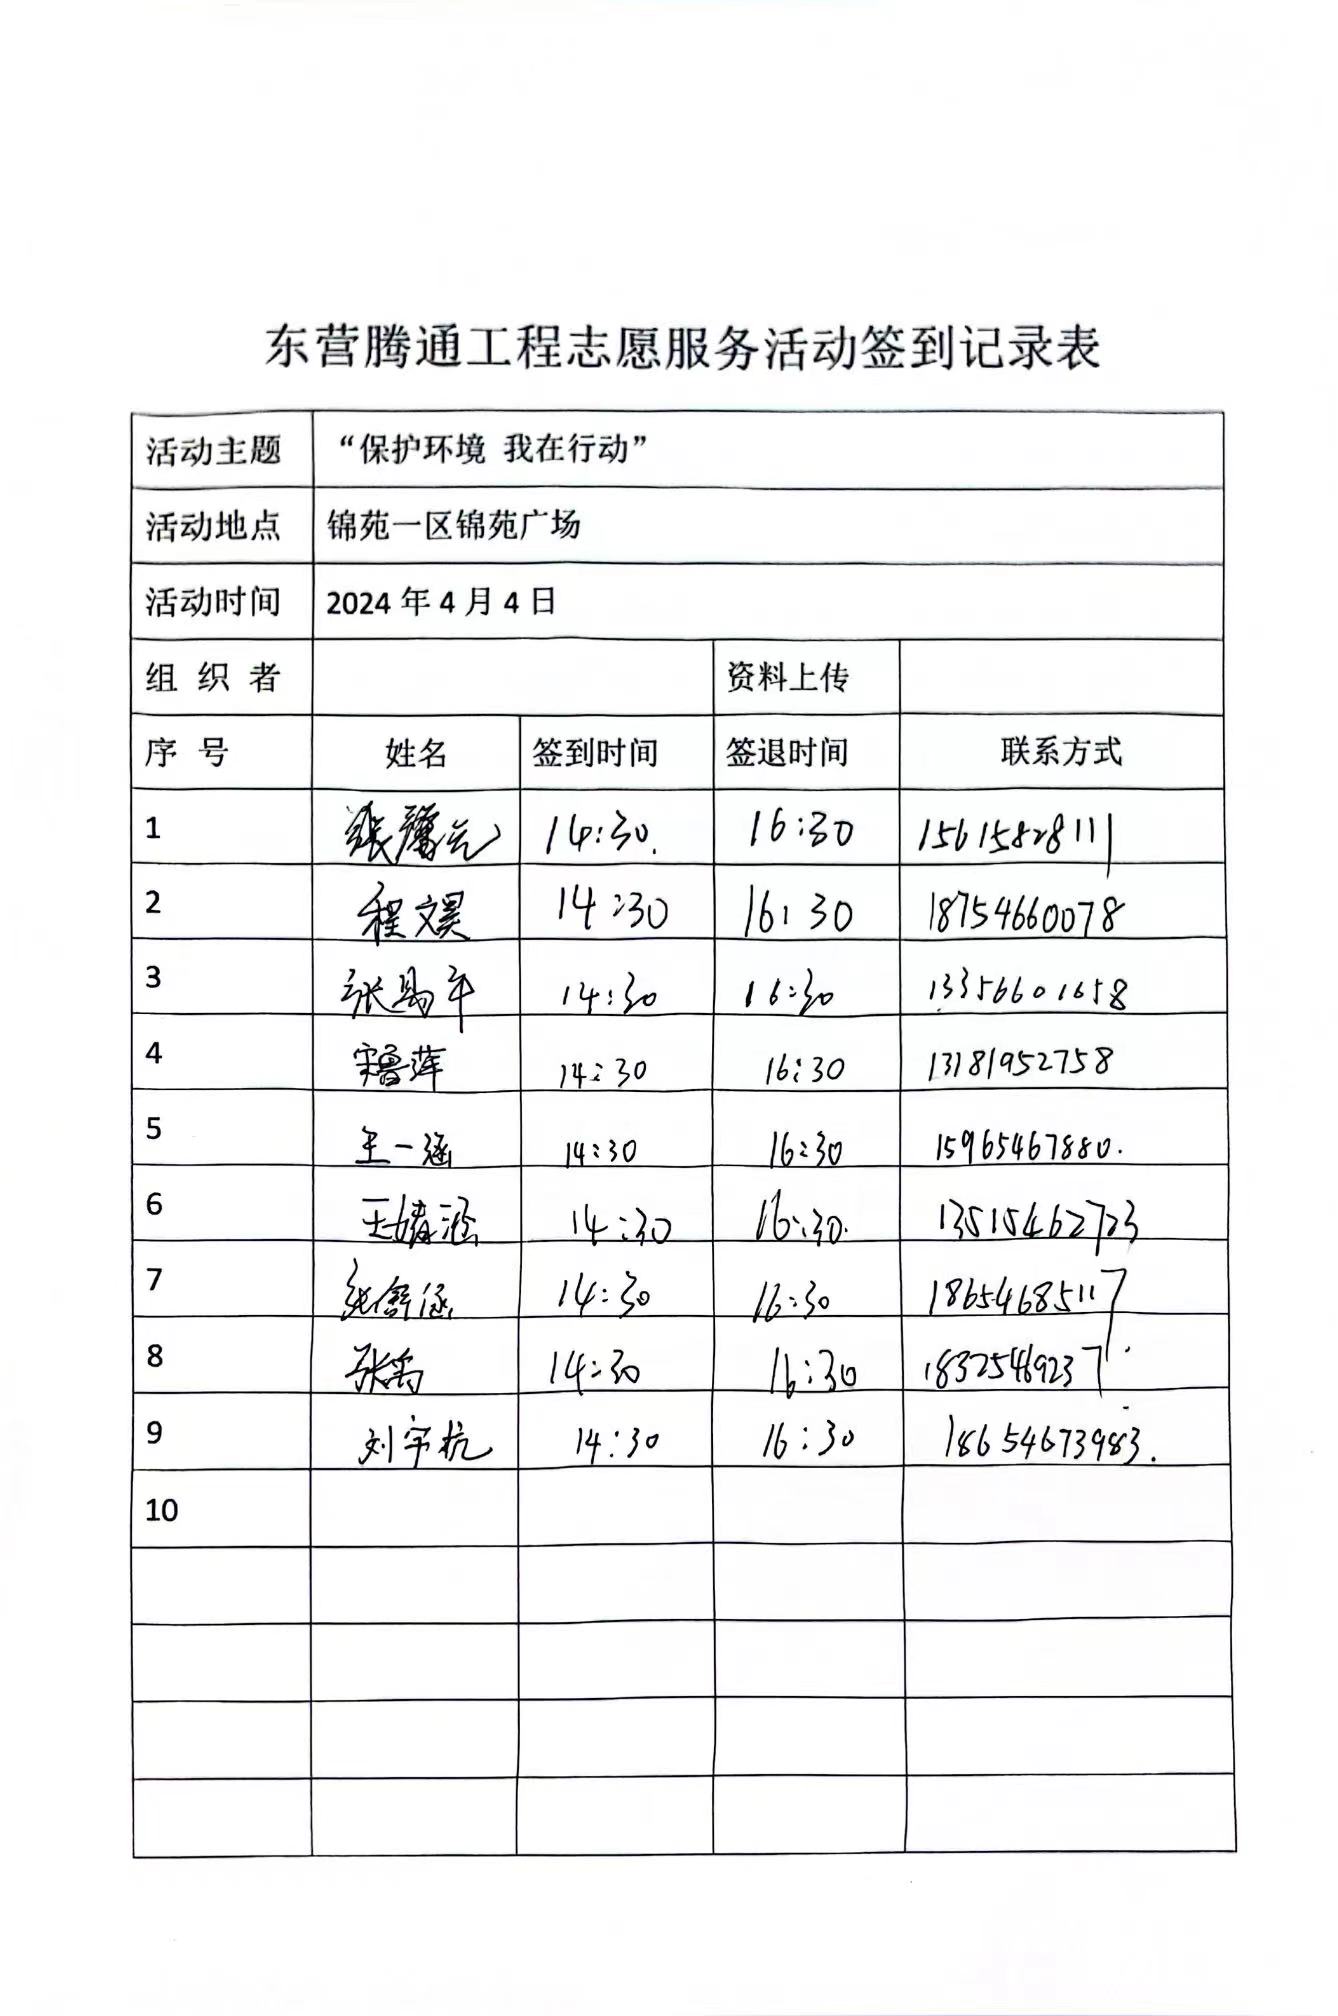 东营腾通工程志愿服务活动签到记录表
活动主题 “保护环境 我在行动”
活动地点 锦苑一区锦苑广场
活动时间 2024 年 4 月 4 日
组 织 者 资料上传
序 号 姓名 签到时间 签退时间 联系方式
1 张 14:30. 16:30 15615828111
2 程文昊 14:30 16:30 18754660078
3 张 14:30 16:30 13356601658
4 宋鲁萍 14:30 16:30 13181952758
5 王一涵 14:30 16:30 15965467880.
6 王婧涵 14:30 16:30. 13515462723
7 张舒涵 14:30 16:30 18654685117
8 张禹 14:30 16:30 18325469237
9 刘宇航 14:30 16:30 18654673983.
10